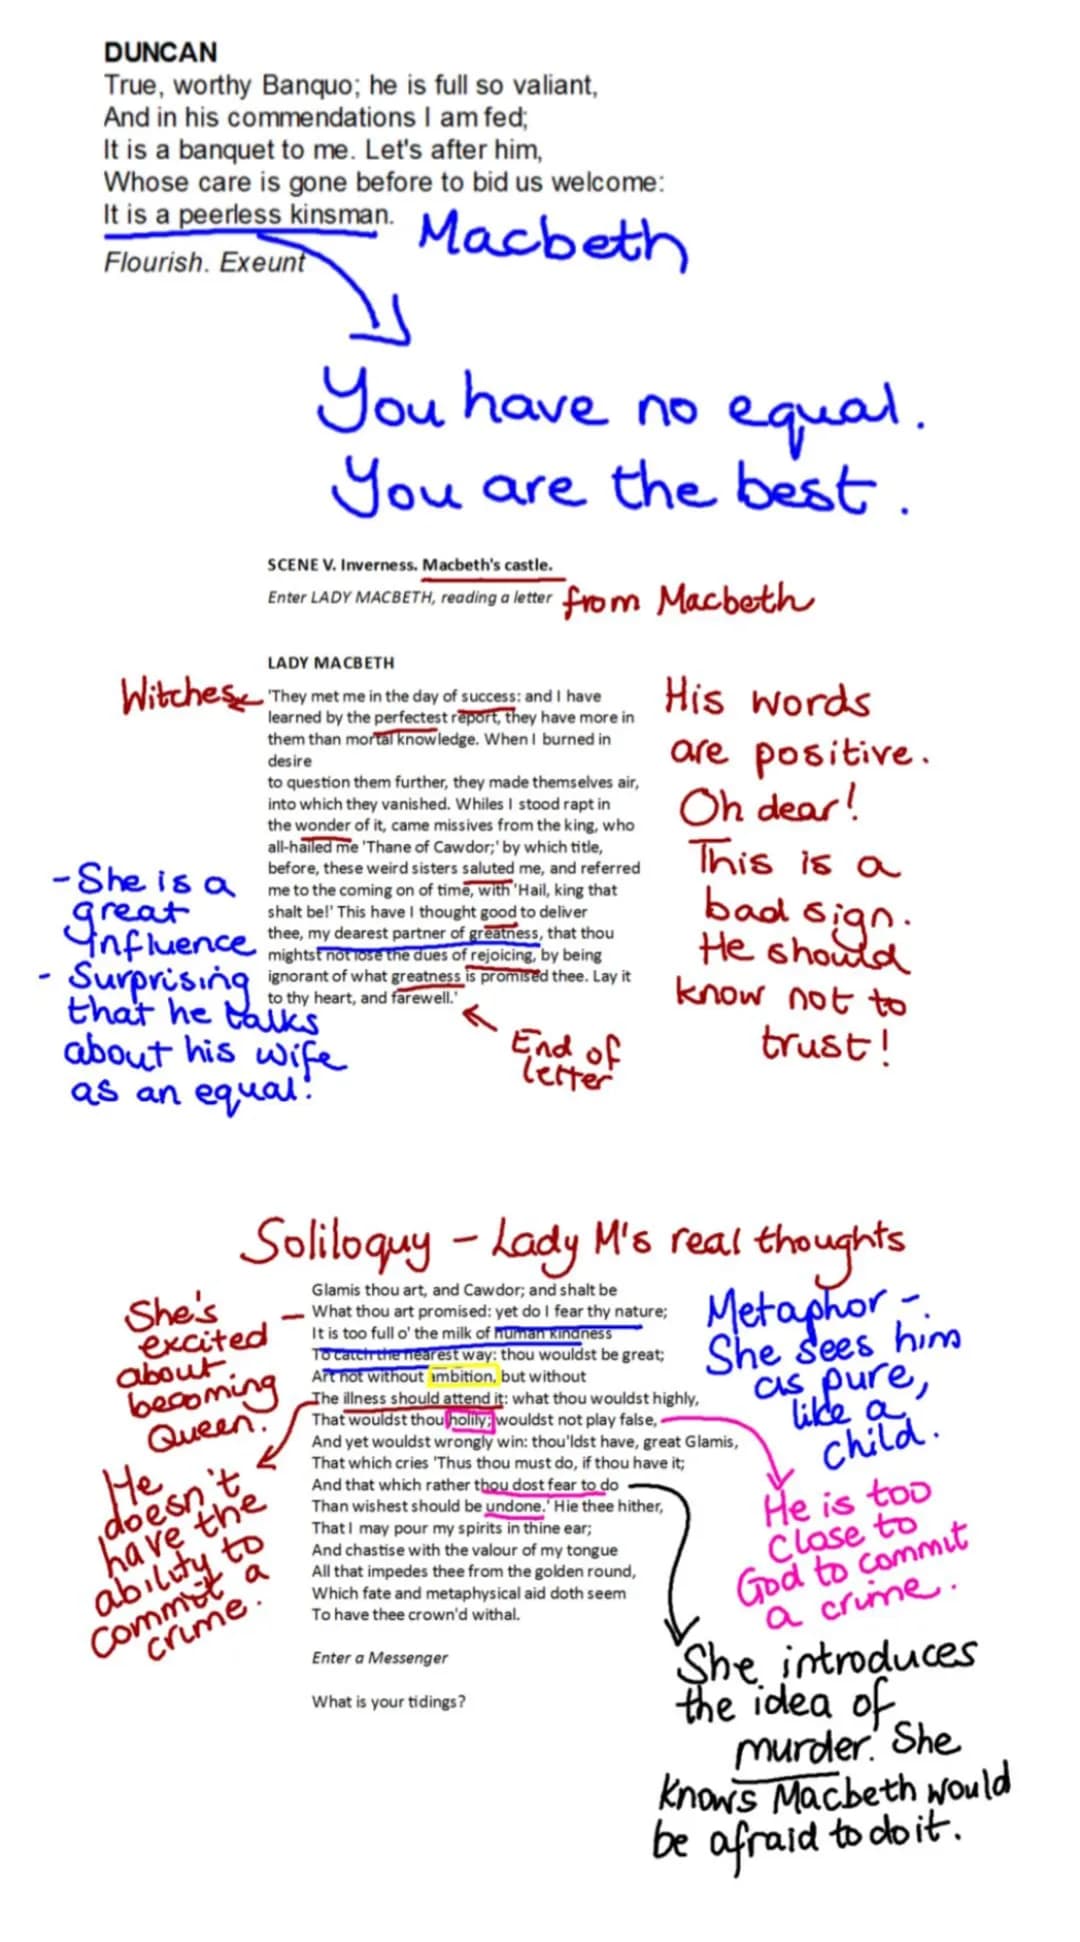 DUNCAN
True, worthy Banquo; he is full so valiant,
And in his commendations I am fed;
It is a banquet to me. Let's after him,
Whose care is gone before to bid us welcome:
It is a peerless kinsman.
Macbeth
Flourish. Exeunt
You have no equal.
You are the best.
SCENE V. Inverness. Macbeth's castle.
Enter LADY MACBETH, reading a letter
from Macbeth
LADY MACBETH
Witches
'They met me in the day of success: and I have
learned by the perfectest report, they have more in
them than mortal knowledge. When I burned in
desire
to question them further, they made themselves air,
into which they vanished. Whiles I stood rapt in
the wonder of it, came missives from the king, who
all-hailed me 'Thane of Cawdor;' by which title,
before, these weird sisters saluted me, and referred
me to the coming on of time, with 'Hail, king that
shalt be!' This have I thought good to deliver
thee, my dearest partner of greatness, that thou
mightst not lose the dues of rejoicing, by being
ignorant of what greatness is promised thee. Lay it
to thy heart, and farewell.'
His words
are positive.
Oh dear!
This is a
bad sign.
He should
know not to
trust!
- She is a
great
influence
- Surprising
that he talks
about his wife
as an equal!
End of
letter
Soliloquy - Lady M's real thoughts
Glamis thou art, and Cawdor; and shalt be
What thou art promised: yet do I fear thy nature;
It is too full o' the milk of human kindness
To catch the nearest way: thou wouldst be great;
Art not without ambition, but without
The illness should attend it: what thou wouldst highly,
That wouldst thou holily; wouldst not play false,
And yet wouldst wrongly win: thou'ldst have, great Glamis,
That which cries 'Thus thou must do, if thou have it;
And that which rather thou dost fear to do
Than wishest should be undone.' Hie thee hither,
That I may pour my spirits in thine ear;
And chastise with the valour of my tongue
All that impedes thee from the golden round,
Which fate and metaphysical aid doth seem
To have thee crown'd withal.
Enter a Messenger
What is your tidings?
She's
excited
about
becoming
Queen.
He
doesn't
have the
ability to
commit a
crime.
Metaphor -
She sees him
as pure,
like a
child.
He is too
close to
God to commit
a crime.
She introduces
the idea of
murder. She
knows Macbeth would
be afraid to do it.